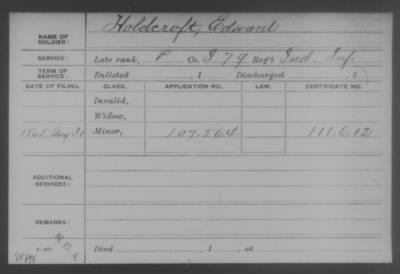 NAME OF SOLDIER: Holdcroft, Edward
SERVICE: Late rank, P Co. I 79 Reg't Ind. Inf.
TERM OF SERVICE: Enlisted , 1 Discharged , 1
DATE OF FILING. CLASS. APPLICATION NO. LAW. CERTIFICATE NO.
Invalid,
Widow,
Aug Minor, 107.564 111.612
ADDITIONAL SERVICES:
REMARKS:
Died , 1 , at